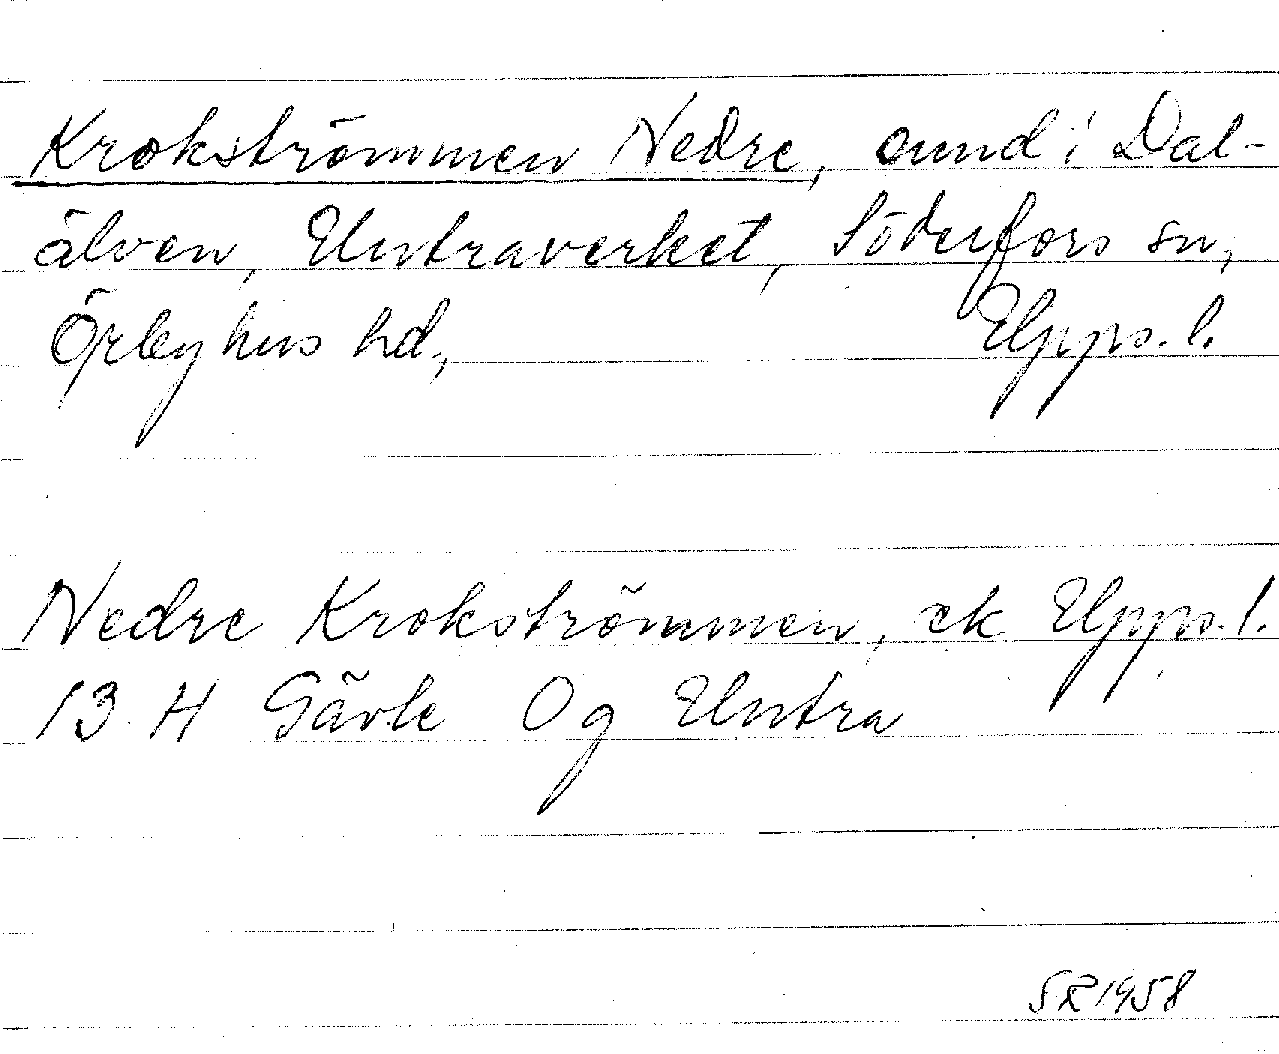 Krokströmmen Nedre, sund i Dal-
älven, Untraverket, Söderfors sn,
Örbyhus hd, Upps. l.
Nedre Krokströmmen, ek Upps. l.
13 H Gävle Og Untra
SR 1958